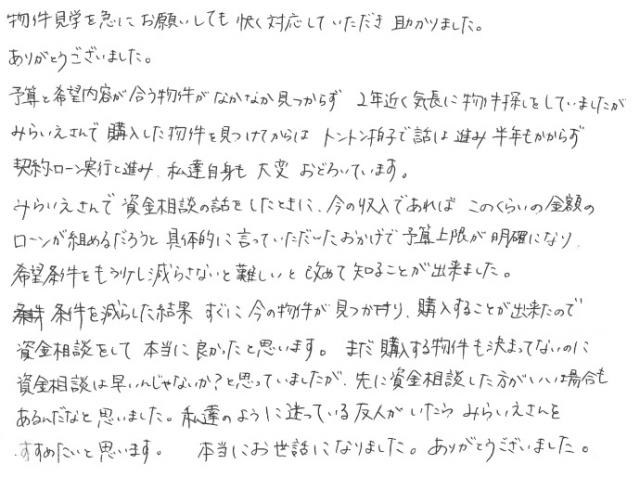 物件見学を急にお願いしても 快く対応していただき 助かりました。
ありがとうございました。
予算と希望内容が合う物件が なかなか見つからず 2年近く気長に物件探しをしていましたが
みらいえさんで 購入した物件を見つけてからは トントン拍子で話は進み 半年もかからず
契約・ローン実行と進み、私達自身も 大変 おどろいています。
みらいえさんで 資金相談の話をしたときに、今の収入であれば このくらいの金額の
ローンが組めるだろうと 具体的に言っていただいたおかげで 予算上限が明確になり、
希望条件をもう少し減らさないと難しいと 改めて知ることが出来ました。
条件を減らした結果 すぐに今の物件が見つかり、購入することが出来たので
資金相談をして 本当に良かったと思います。 まだ購入する物件も決まってないのに
資金相談は早いんじゃないか?と思っていましたが、先に資金相談した方がいい場合も
あるんだなと思いました。私達のように迷っている友人がいたら みらいえさんを
すすめたいと思います。 本当にお世話になりました。ありがとうございました。